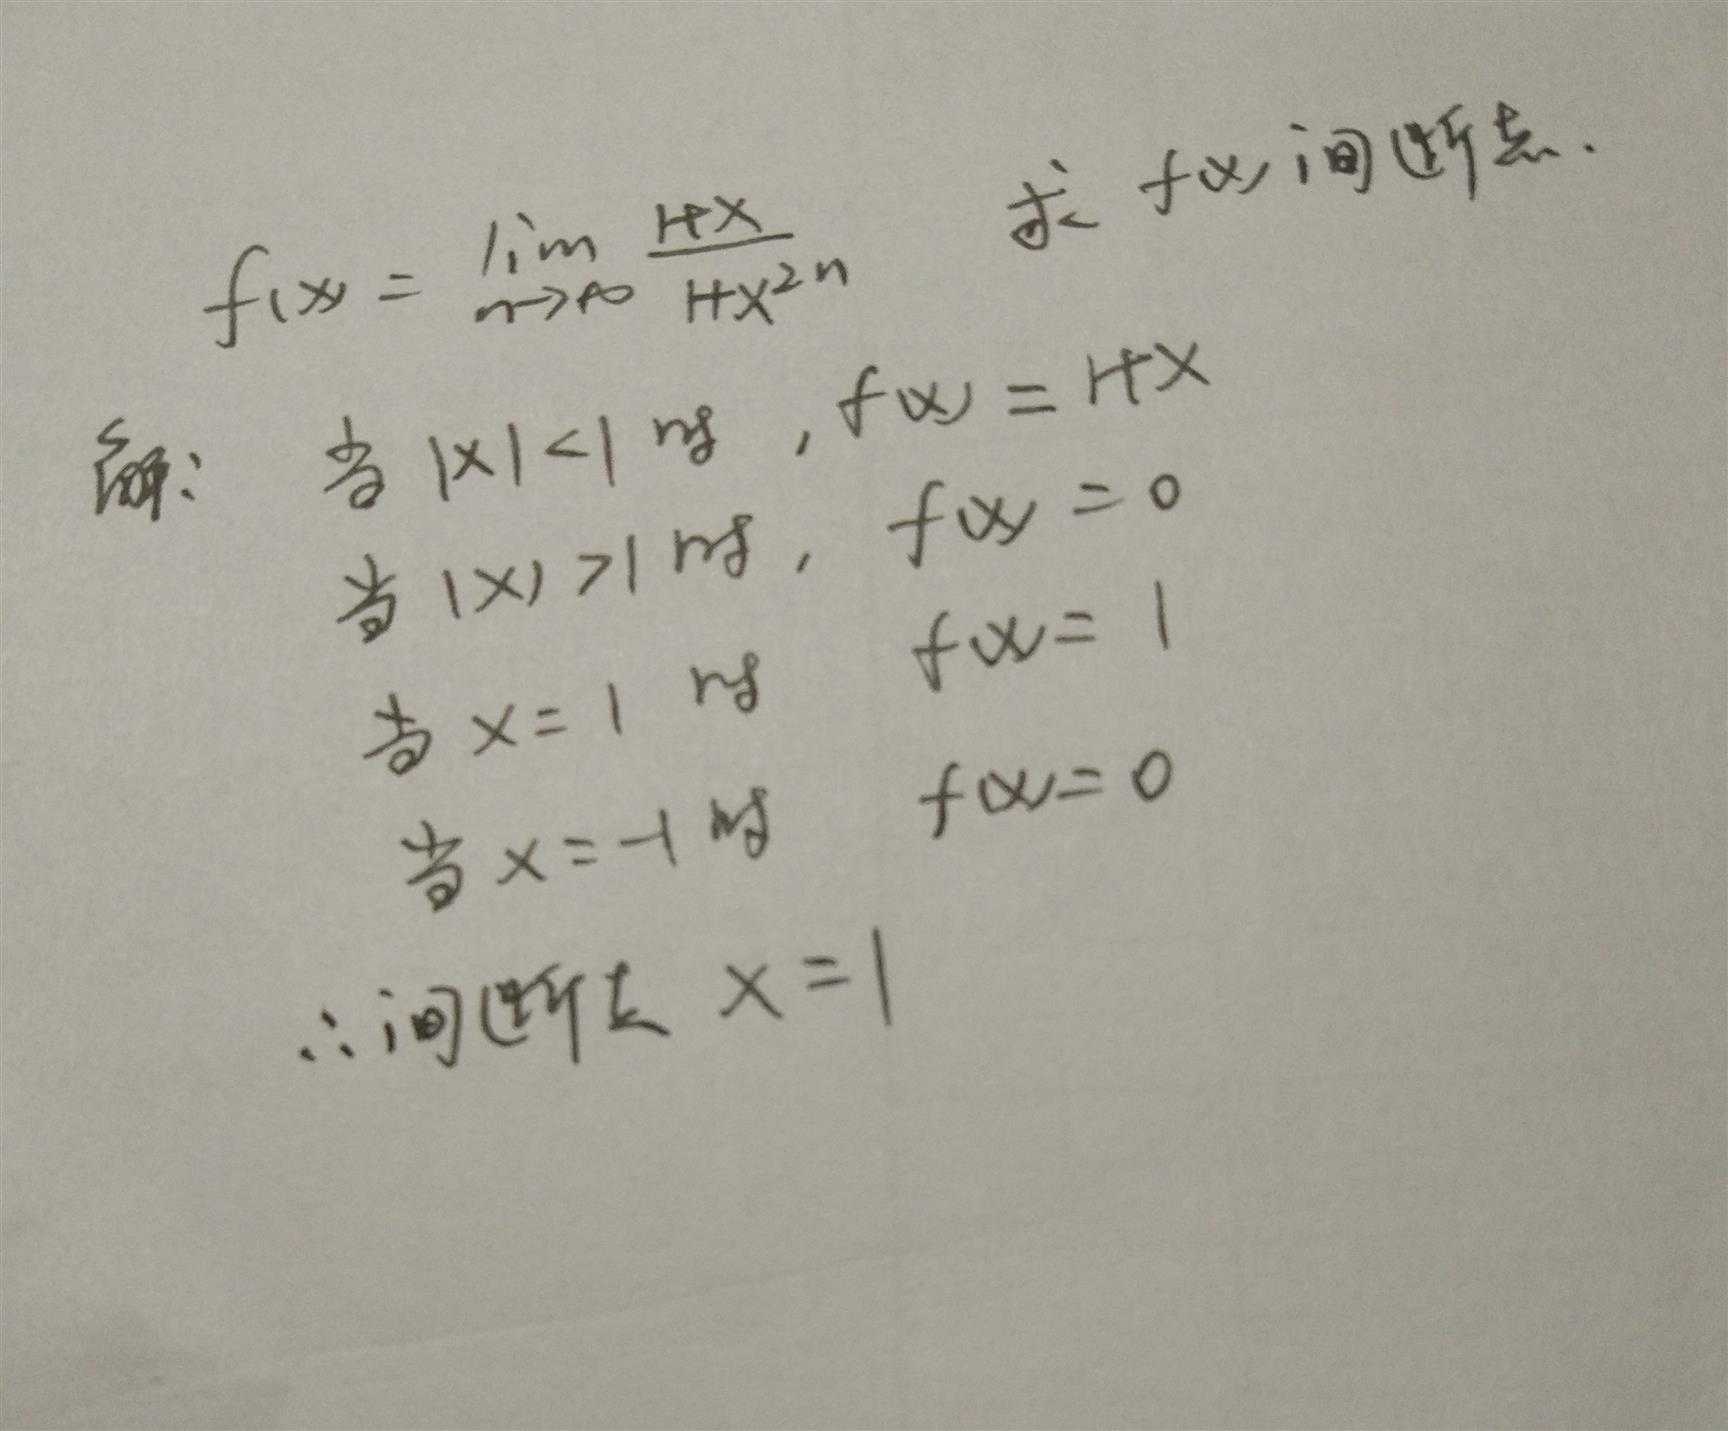 f(x) = lim n→∞ (1+x)/(1+x^{2n}) 求 f(x) 间断点.
解: 当 |x|<1 时, f(x) = 1+x
当 |x|>1 时, f(x) = 0
当 x=1 时 f(x) = 1
当 x=-1时 f(x)=0
∴间断点 x=1